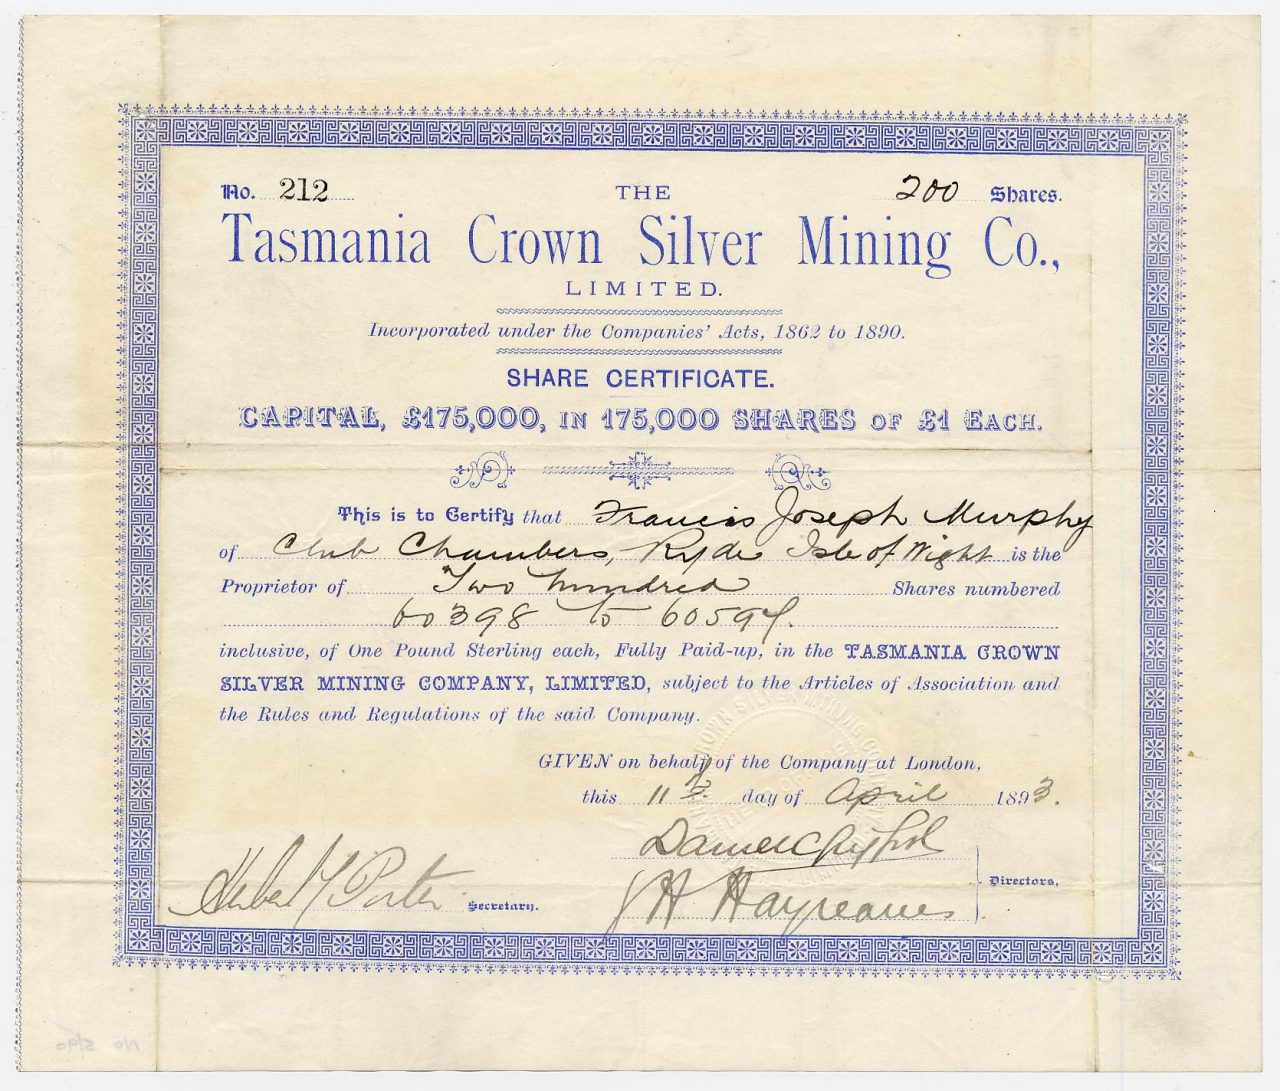 No. 212
THE
200 Shares.
Tasmania Crown Silver Mining Co.,
LIMITED.
Incorporated under the Companies' Acts, 1862 to 1890.
SHARE CERTIFICATE.
CAPITAL, £175,000, IN 175,000 SHARES OF £1 EACH.
This is to Certify that Francis Joseph Murphy
of Club Chambers, Ryde Isle of Wight is the
Proprietor of Two hundred Shares numbered
60398 to 60597.
inclusive, of One Pound Sterling each, Fully Paid-up, in the TASMANIA CROWN
SILVER MINING COMPANY, LIMITED, subject to the Articles of Association and
the Rules and Regulations of the said Company.
GIVEN on behalf of the Company at London,
this 11th day of April 1893.
Porter Secretary.
J H Hargreaves
Directors.